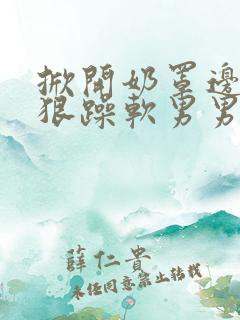 掀開奶罩邊
狠躁軟男男
薛仁貴
未任同意禁止转载